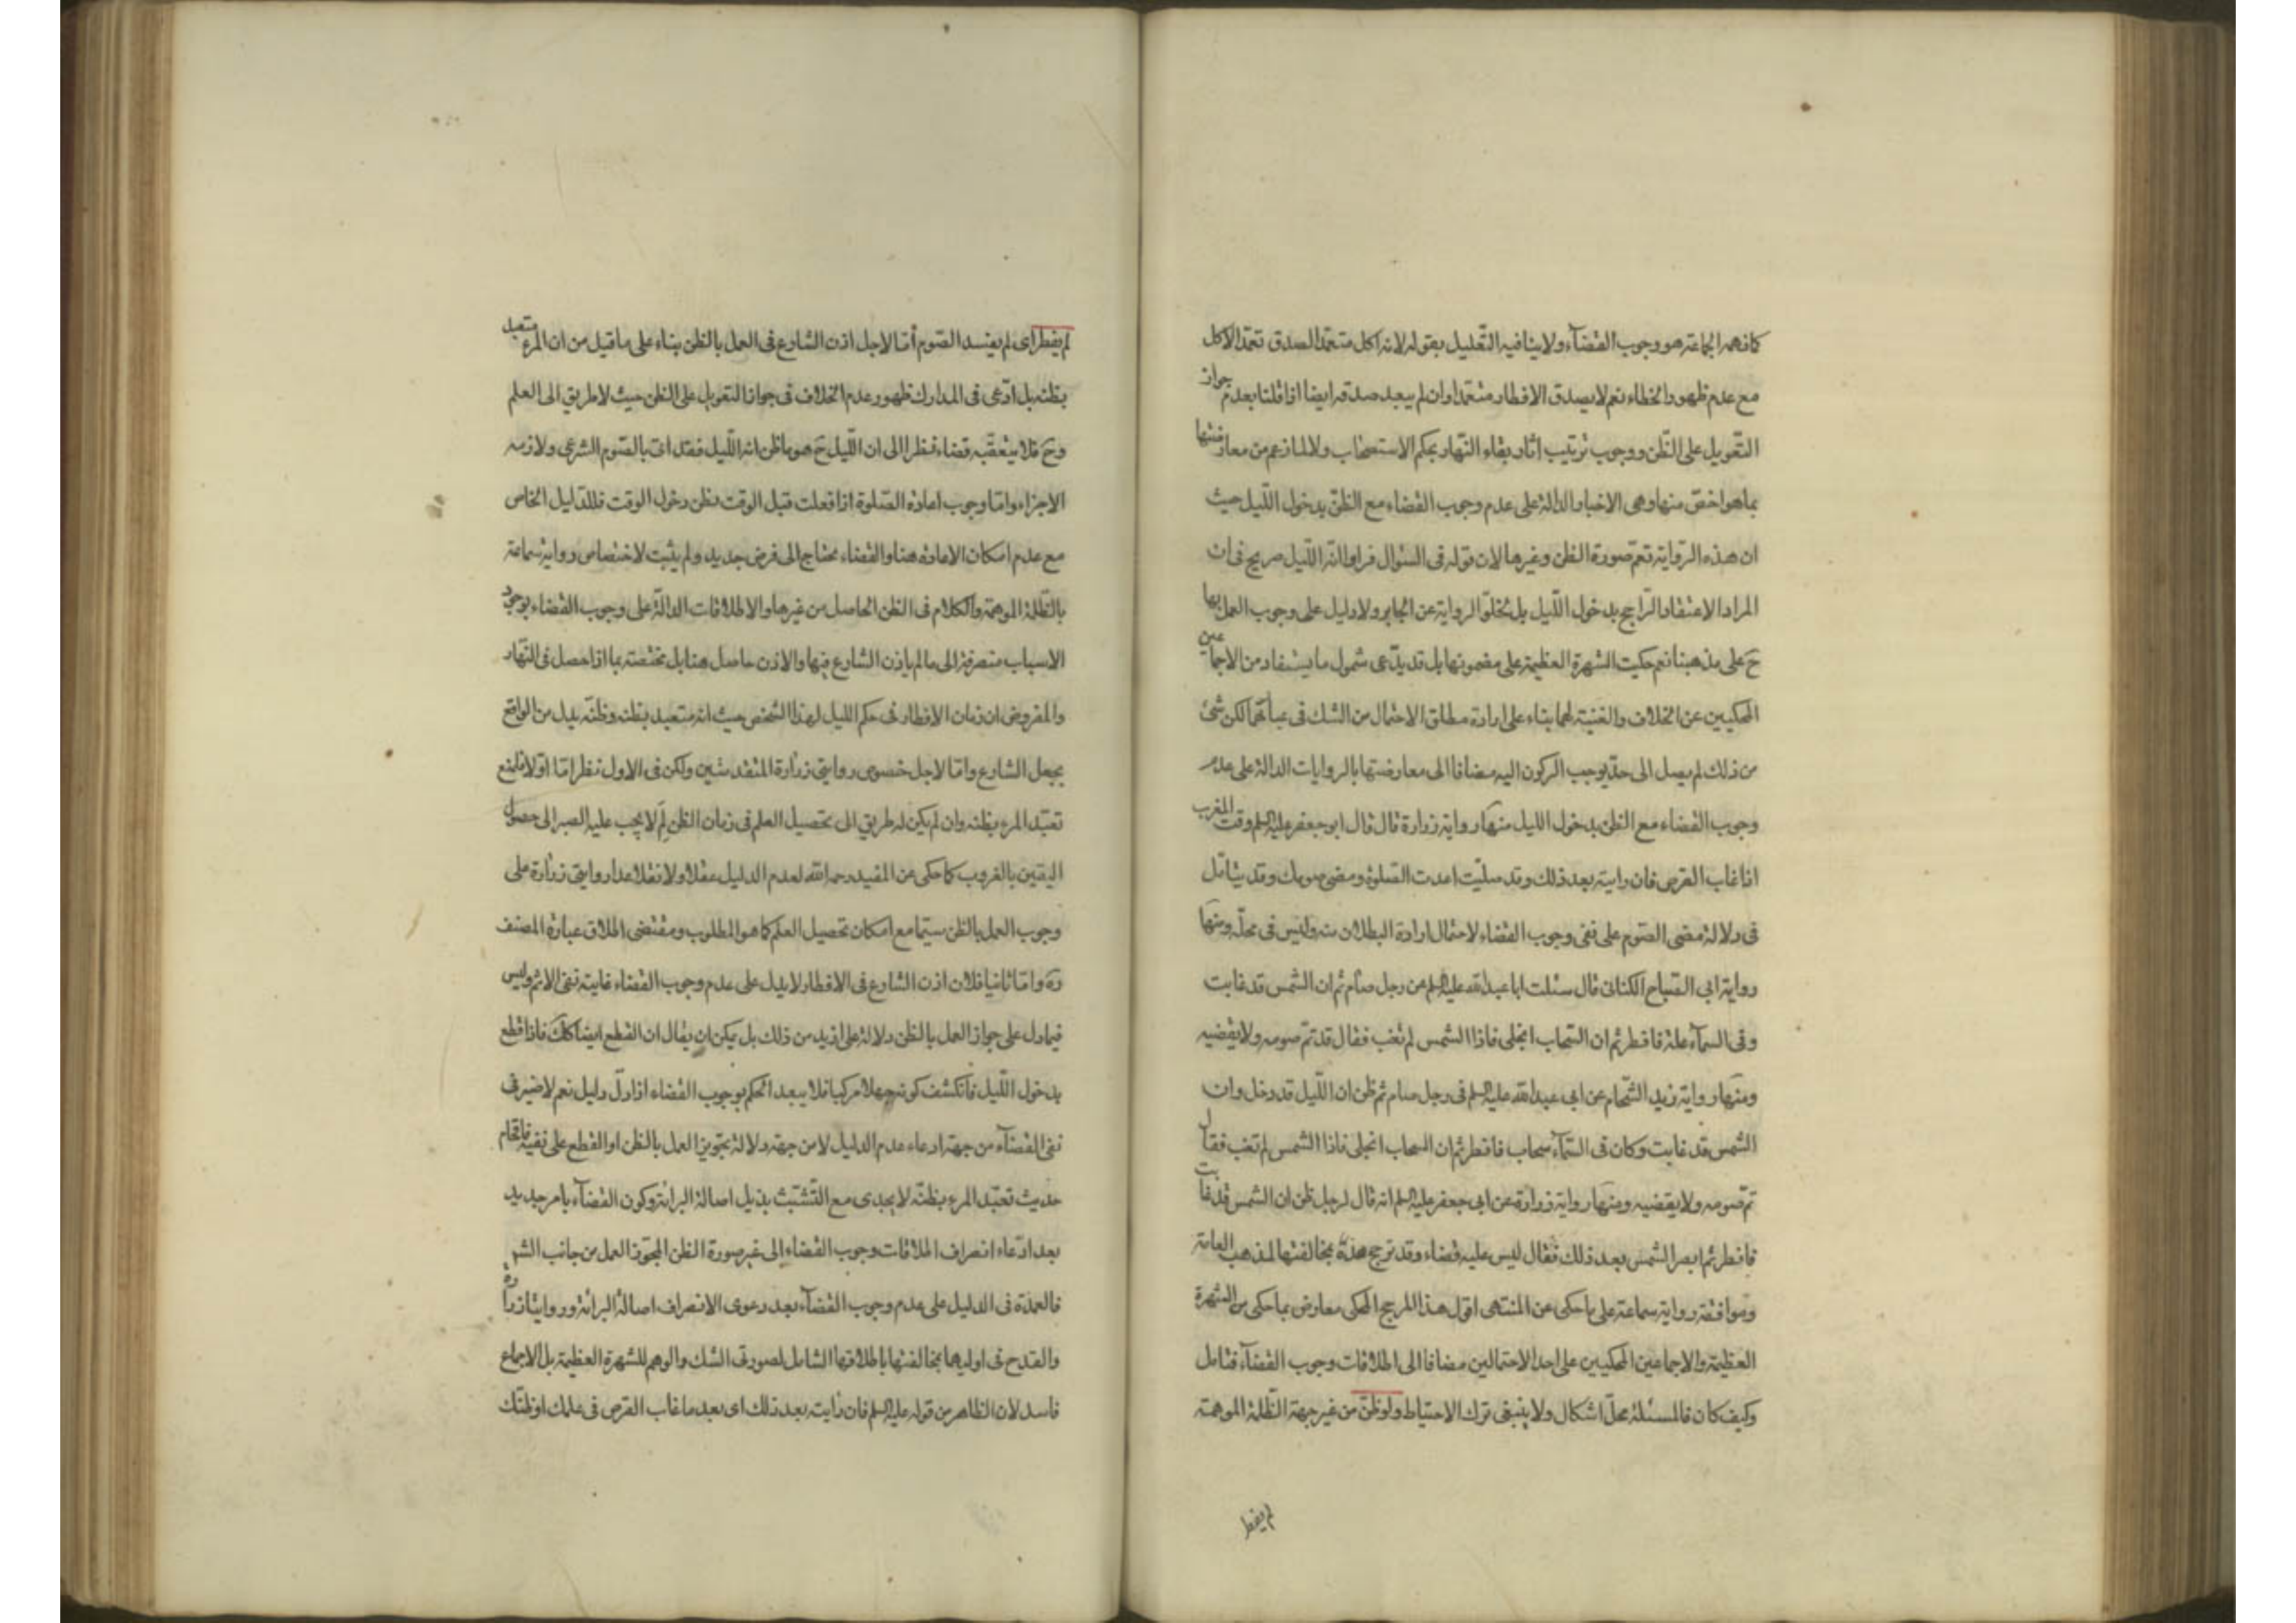 كافهمه الجماعة هو وجوب القضآء ولا ينافيه التعليل بقوله لانه اكل متعمدا لصدق تعمد الاكل
مع عدم ظهور الخطاء نعم لا يصدق الافطار متعمدا وان لم يبعد صدقه ايضا اذا قلنا بعدم جواز
التعويل على الظن ووجوب ترتيب اثار بقاء النهار بحكم الاستصحاب ولا لما زعم من معارضتها
بما هو اخص منها وهى الاخبار الدالة على عدم وجوب القضاء مع الظن بدخول الليل حيث
ان هذه الرواية تعم صورة الظن وغيرها لان قوله فى السئوال فراوا انه الليل صريح فى ان
المراد الاعتقاد الراجح بدخول الليل بل لخلو الرواية عن الجابر ولا دليل على وجوب العمل بها
ح على مذهبنا نعم حكيت الشهرة العظيمة على مضمونها بل قد يدعى شمول ما يستفاد من الاجماعين
المحكيين عن الخلاف والغنية لهما بناء على ارادة مطلق الاحتمال من الشك فى عبارتهما لكن شئ
من ذلك لم يصل الى حد يوجب الركون اليه مضافا الى معارضتها بالروايات الدالة على عدم
وجوب القضاء مع الظن بدخول الليل منها رواية زرارة قال قال ابو جعفر عليه السلم وقت المغرب
اذا غاب القرص فان رايته بعد ذلك وقد صليت اعدت الصلوة ومضى صومك وقد يتامل
فى دلالة مضى الصوم على نفى وجوب القضاء لاحتمال ارادة البطلان منه وليس فى محله ومنها
رواية ابى الصباح الكنانى قال سئلت ابا عبد الله عليه السلم عن رجل صام ثم ان الشمس قد غابت
وفى السمآء علة فافطر ثم ان السحاب انجلى فاذا الشمس لم تغب فقال قد تم صومه ولا يقضيه
ومنها رواية زيد الشحام عن ابى عبد الله عليه السلم فى رجل صام ثم ظن ان الليل قد دخل وان
الشمس قد غابت وكان فى السمآء سحاب فافطر ثم ان السحاب انجلى فاذا الشمس لم تغب فقال
تم صومه ولا يقضيه ومنها رواية زرارة عن ابى جعفر عليه السلم انه قال لرجل ظن ان الشمس قد غابت
فافطر ثم ابصر الشمس بعد ذلك فقال ليس عليه قضاء وقد ترجح هذه بمخالفتها لمذهب العامة
وموافقة رواية سماعة على ما حكى عن المنتهى اقول هذا المرجح المحكى معارض بما حكى من الشهرة
العظيمة والاجماعين المحكيين على احد الاحتمالين مضافا الى اطلاقات وجوب القضآء فتامل
وكيف كان فالمسئلة محل اشكال ولا ينبغى ترك الاحتياط ولو ظن من غير جهة الظلمة الموهمة
لم يفطر
لم يفطر اى لم يفسد الصوم أما لاجل اذن الشارع فى العمل بالظن بناء على ما قيل من ان المرء متعبد
بظنه بل ادعى فى المدارك ظهور عدم الخلاف فى جواز التعويل على الظن حيث لا طريق الى العلم
وح فلا يتعقبه قضاء نظرا الى ان الليل ح هو ما ظن انه الليل فقد اتى بالصوم الشرعى ولازمه
الاجزاء واما وجوب اعادة الصلوة اذا فعلت قبل الوقت بظن دخول الوقت فللدليل الخاص
مع عدم امكان الاعادة هنا والقضاء محتاج الى فرض جديد ولم يثبت لاختصاص رواية سماعة
بالظلمة الموهمة والكلام فى الظن الحاصل من غيرها والاطلاقات الدالة على وجوب القضاء بوجود
الاسباب منصرفة الى ما لم ياذن الشارع فيها والاذن حاصل هنا بل مختصة بما اذا حصل فى النهار
والمفروض ان زمان الافطار فى حكم الليل لهذا الشخص حيث انه متعبد بظنه وظنه بدل من الواقع
بجعل الشارع واما لاجل خصوص روايتى زرارة المتقدمتين ولكن فى الاول نظر اما اولا فلمنع
تعبد المرء بظنه وان لم يكن له طريق الى تحصيل العلم فى زمان الظن لم لا يجب عليه الصبر الى حصول
اليقين بالغروب كما حكى عن المفيد رحمه الله لعدم الدليل عقلا ولا نقلا عدا روايتى زرارة على
وجوب العمل بالظن سيما مع امكان تحصيل العلم كما هو المطلوب ومقتضى اطلاق عبارة المصنف
ره واما ثانيا فلان اذن الشارع فى الافطار لا يدل على عدم وجوب القضاء غايته نفى الاثم وليس
فيما دل على جواز العمل بالظن دلالة على ازيد من ذلك بل يمكن ان يقال ان القطع ايضا كك فاذا قطع
بدخول الليل فانكشف كونه جهلا مركبا فلا يبعد الحكم بوجوب القضاء اذا دل دليل نعم لا ضير فى
نفى القضآء من جهة ادعاء عدم الدليل لا من جهة دلالة تجويز العمل بالظن او القطع على نفيه فاقحام
حديث تعبد المرء بظنه لا يجدى مع التشبث بذيل اصالة البرائة وكون القضآء بامر جديد
بعد ادعاء انصراف اطلاقات وجوب القضاء الى غير صورة الظن المجوز العمل من جانب الشرع
فالعمدة فى الدليل على عدم وجوب القضآء بعد دعوى الانصراف اصالة البرائة وروايتا زرارة
والقدح فى اوليهما بمخالفتها باطلاقها الشامل لصورتى الشك والوهم للشهرة العظيمة بل الاجماع
فاسد لان الظاهر من قوله عليه السلم فان رايته بعد ذلك اى بعد ما غاب القرص فى علمك او ظنك